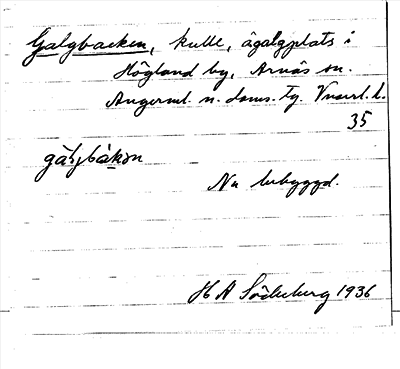 Galgbacken, kulle, ågalgplats i
Högland by, Arnäs sn.
Ångerml. n. doms. tg. Vnorrl. l.
35
gàl̨jbàkən
Nu bebyggd.
H A Söderberg 1936